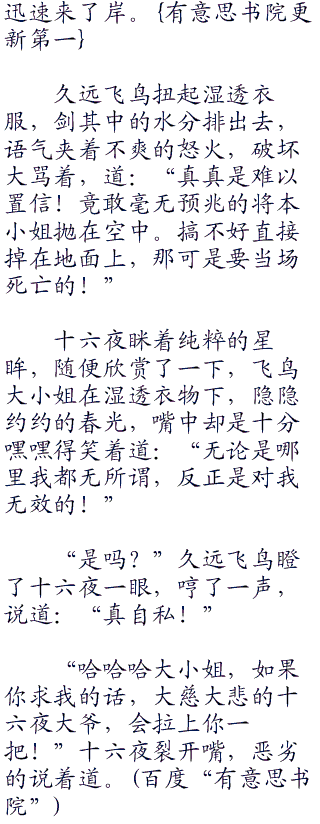 迅速来了岸。{有意思书院更
新第一}
久远飞鸟扭起湿透衣
服，剑其中的水分排出去，
语气夹着不爽的怒火，破坏
大骂着，道：“真真是难以
置信！竟敢毫无预兆的将本
小姐抛在空中。搞不好直接
掉在地面上，那可是要当场
死亡的！”
十六夜眯着纯粹的星
眸，随便欣赏了一下，飞鸟
大小姐在湿透衣物下，隐隐
约约的春光，嘴中却是十分
嘿嘿得笑着道：“无论是哪
里我都无所谓，反正是对我
无效的！”
“是吗？”久远飞鸟瞪
了十六夜一眼，哼了一声，
说道：“真自私！”
“哈哈哈大小姐，如果
你求我的话，大慈大悲的十
六夜大爷，会拉上你一
把！”十六夜裂开嘴，恶劣
的说着道。(百度“有意思书
院”)